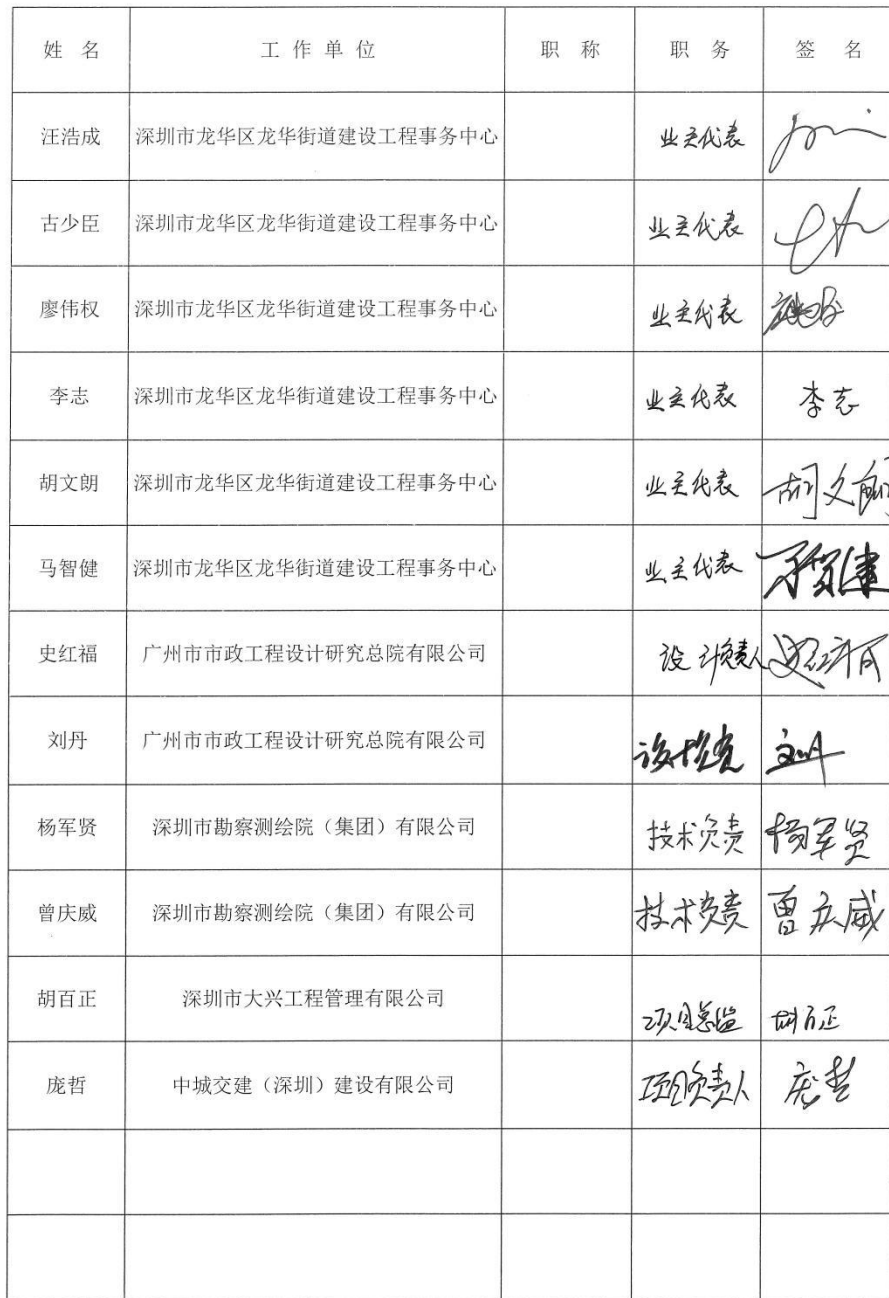 姓 名 工 作 单 位 职 称 职 务 签 名
汪浩成 深圳市龙华区龙华街道建设工程事务中心 业主代表
古少臣 深圳市龙华区龙华街道建设工程事务中心 业主代表
廖伟权 深圳市龙华区龙华街道建设工程事务中心 业主代表
李志 深圳市龙华区龙华街道建设工程事务中心 业主代表 李志
胡文朗 深圳市龙华区龙华街道建设工程事务中心 业主代表 胡文朗
马智健 深圳市龙华区龙华街道建设工程事务中心 业主代表 马智健
史红福 广州市市政工程设计研究总院有限公司 设计负责人 史红福
刘丹 广州市市政工程设计研究总院有限公司 刘丹
杨军贤 深圳市勘察测绘院（集团）有限公司 技术负责 杨军贤
曾庆威 深圳市勘察测绘院（集团）有限公司 技术负责 曾庆威
胡百正 深圳市大兴工程管理有限公司 项目总监 胡百正
庞哲 中城交建（深圳）建设有限公司 项目负责人 庞哲